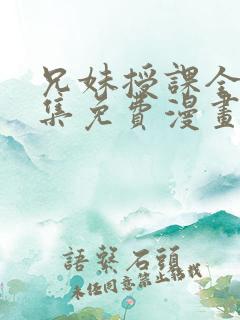 兄妹授課全
集免費漫畫
語繫石頭
未經同意禁止轉載